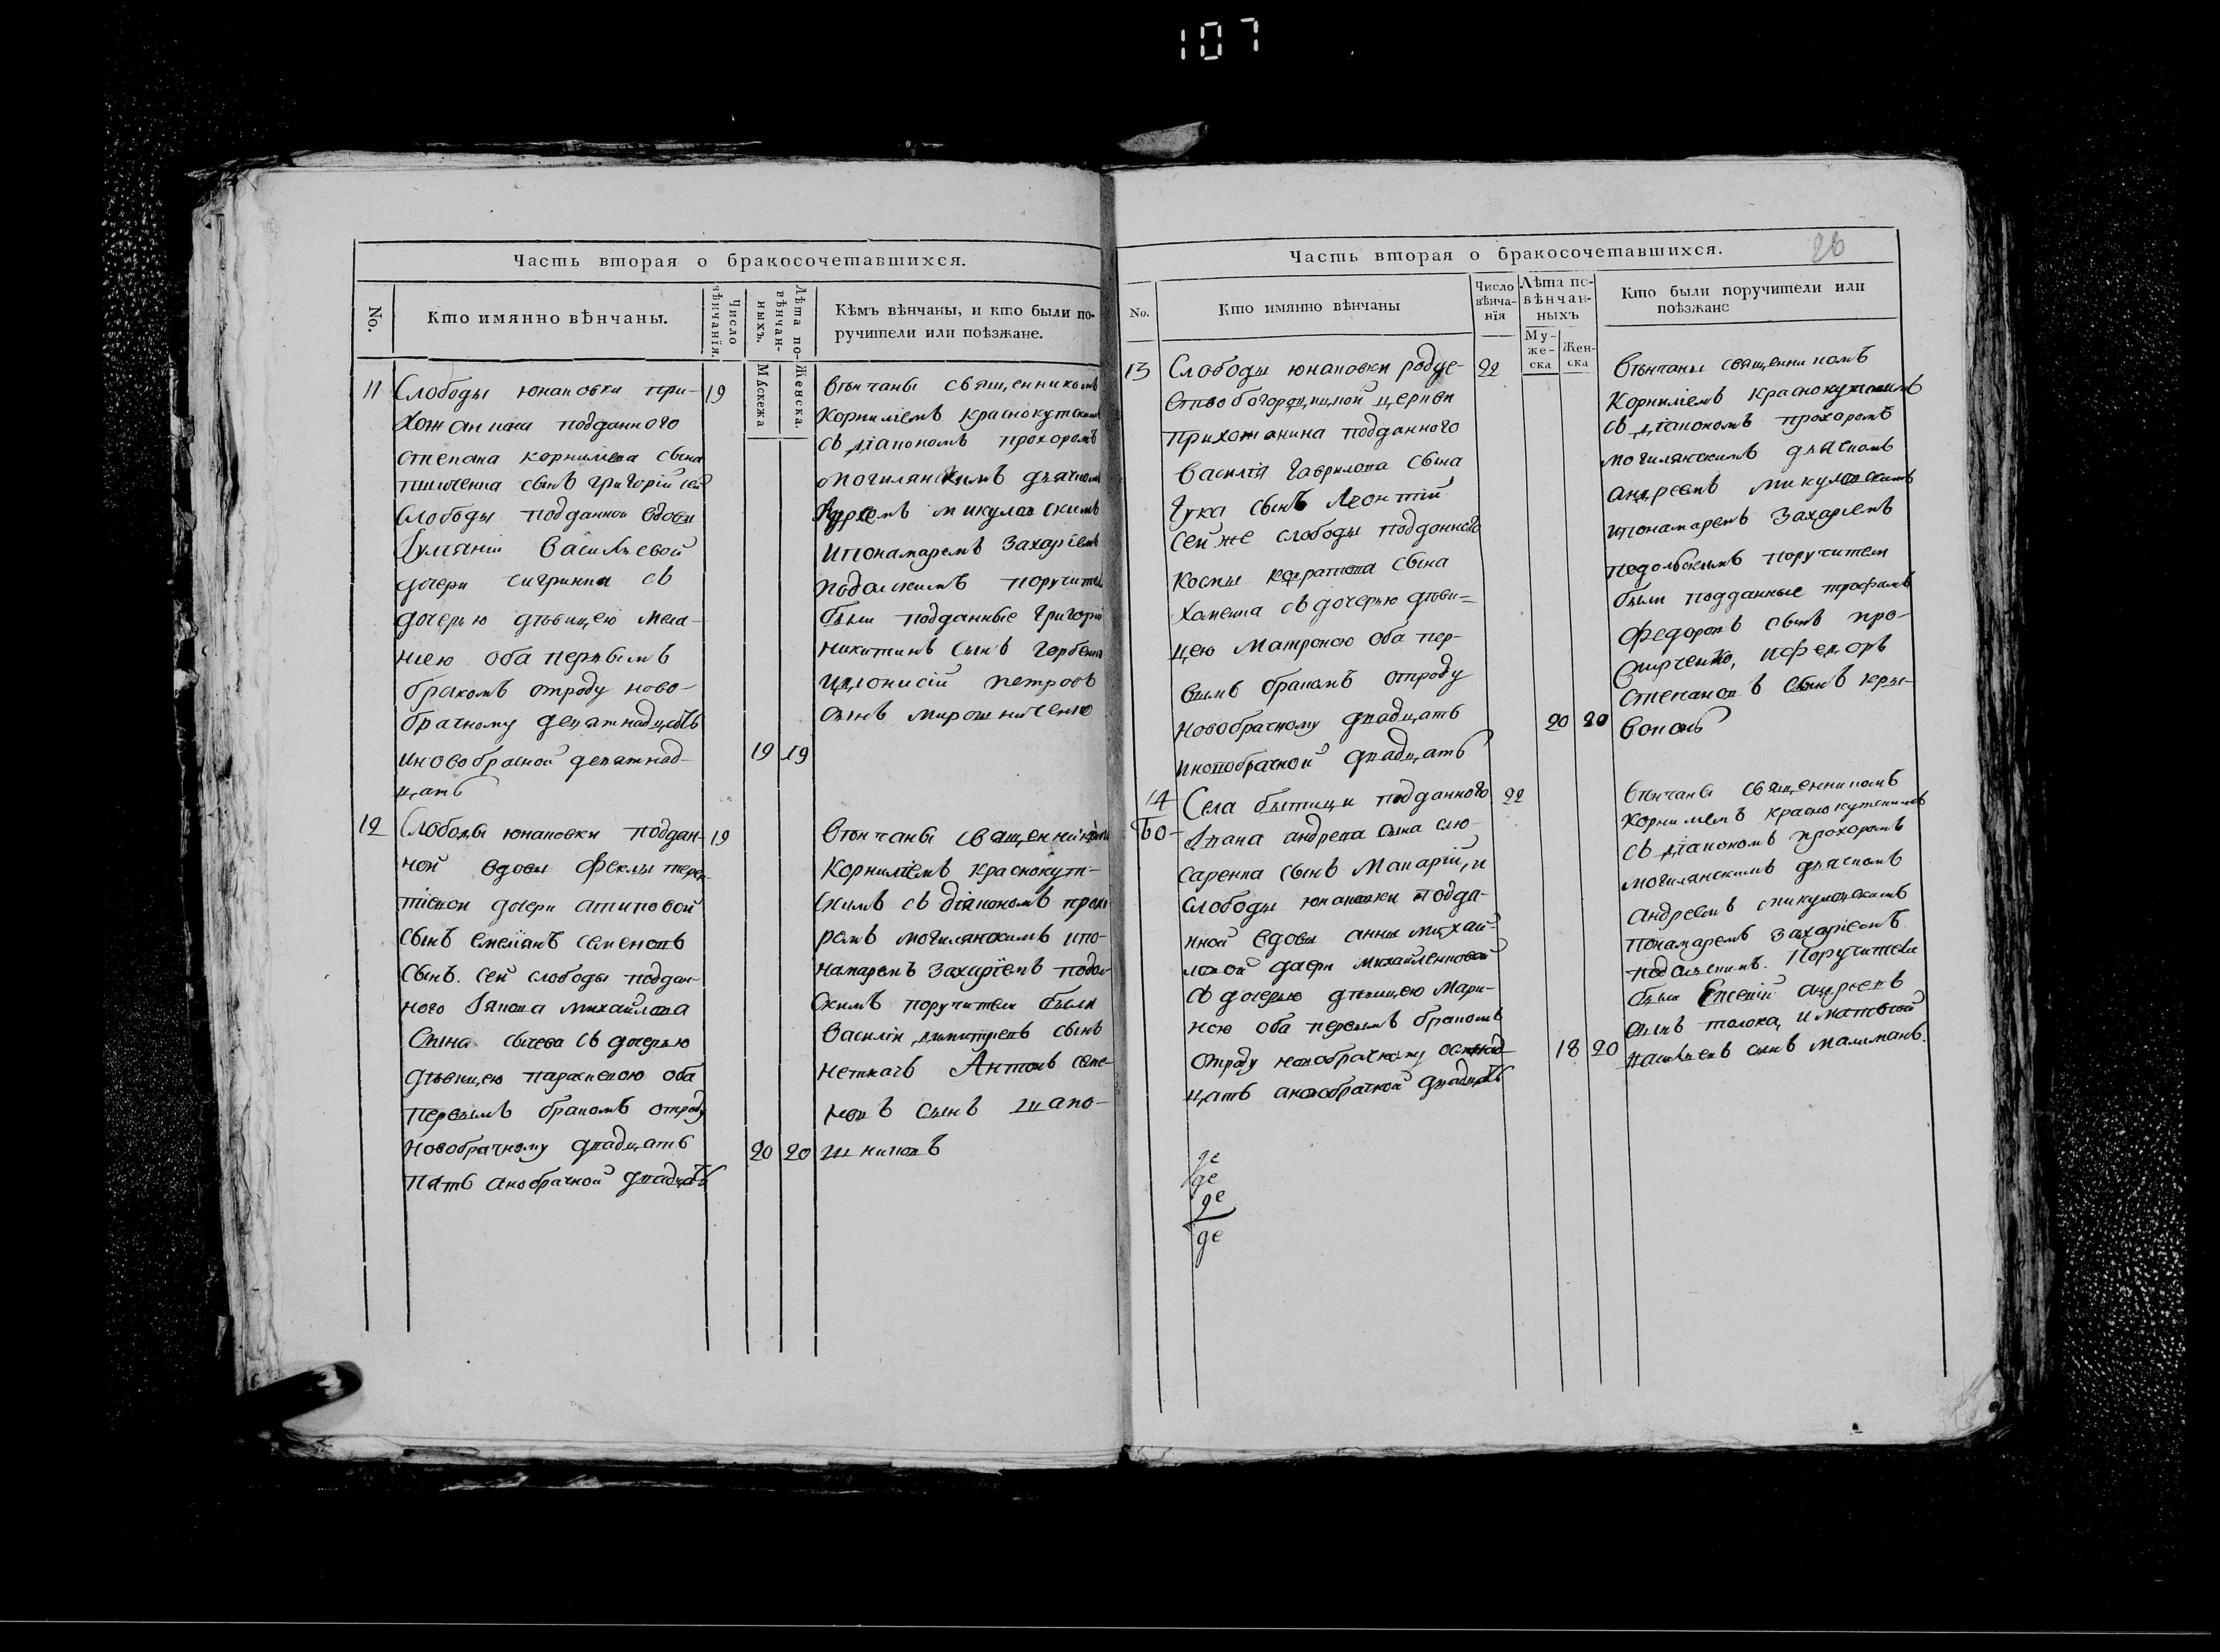 107
Часть вторая о бракосочетавшихся.
No.
Кто имянно вѣнчаны.
Число вѣнчанїя.
Лѣта повѣнчанныхъ.
Мужеска
Женска.
Кѣмъ вѣнчаны, и кто были по-
ручители или поѣзжане.
11 Слободы юнаковки при- 19
хожанина подданного
степана корнилїева сына
сынъ григорїй сей
слободы подданной вдовы
Васильевой
дочери съ
дочерью дѣвицею мела-
нїею оба первымъ
бракомъ отроду ново-
брачному девятнадцать
иновобрачной девятнад-
цать
19 19
вѣнчаны священникомъ
корнилїемъ краснокутскимъ
съ дїакономъ прохоромъ
могилянскимъ дьячкомъ
андреемъ микуловскимъ
ипонамаремъ захарїемъ
подолскимъ поручители
были подданные григорїй
никитинъ сынъ
идионисїй петровъ
сынъ мирошниченко
12 Слободы юнаковки поддан- 19
ной вдовы феклы терен-
тїевой дочери
сынъ емелїанъ семеновъ
сынъ. сей слободы поддан-
ного якова михайлова
сына сычева съ дочерью
дѣвицею параскевою оба
первымъ бракомъ отроду
новобрачному двадцать
пять анобрачной двадцать
20 20
вѣнчаны священникомъ
корнилїемъ краснокут-
скимъ съ дїакономъ прохо
ромъ могилянскимъ ипо-
намаремъ захарїемъ подол
скимъ поручители были
василїи димитрїевъ сынъ
Антонъ семе-
новъ сынъ шапо-
шниковъ
Часть вторая о бракосочетавшихся.
26
No.
Кто имянно вѣнчаны
Число вѣнча-
нїя
Лѣта по-
вѣнчан-
ныхъ
Му-
же-
ска
Жен-
ска
Кто были поручители или
поѣзжане
13 Слободы юнаковки рождe- 22
ство богородицкой церкви
прихожанина подданного
василїя гаврилова сына
гука сынъ леонтїй
сей же слободы подданного
космы кондратова сына
хоменка съ дочерью дѣви-
цею матроною оба пер-
вымъ бракомъ отроду
новобрачному двадцать
иновобрачной двадцать
20 20
вѣнчаны священникомъ
корнилїемъ краснокутскимъ
съ дїакономъ прохоромъ
могилянскимъ дьячкомъ
андреемъ микуловскимъ
ипонамаремъ захарїемъ
подольскимъ поручители
были подданные трофимъ
федоровъ сынъ про-
скурченко, ифедоръ
степановъ сынъ кры-
воносъ
14 Села бытици подданного 22
андреева сына слю-
саренка сынъ макарїй, и
слободы юнаковки подда-
нной вдовы анны михай-
ловой дочери михайленковой
съ дочерью дѣвицею мари-
ною оба первымъ бракомъ
отроду новобрачному осмнад-
цать анобрачной двадцать
18 20
вѣнчаны священникомъ
корнилїемъ краснокутскимъ
съ дїакономъ прохоромъ
могилянскимъ дьячкомъ
андреемъ микуловскимъ
понамаремъ захарїемъ
подолскимъ. поручители
были андреевъ
сынъ толока, иматвѣй
васильевъ сынъ малиманъ.
де
де
де
де